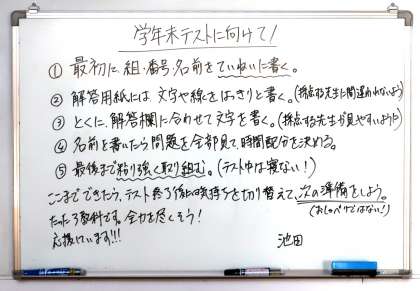 学年末テストに向けて！
① 最初に、組・番号・名前をていねいに書く。
② 解答用紙には、文字や線をはっきりと書く。(採点する先生に間違われないよう)
③ とくに、解答欄に合わせて文字を書く。(採点する先生が見やすいように)
④ 名前を書いたら問題を全部見て、時間配分を決める。
⑤ 最後まで粘り強く取り組む。(テスト中は寝ない！)
ここまでできたら、テスト終了後には気持ちを切り替えて、次の準備をしよう。
(おしゃべりではない！)
たった3教科です。全力を尽くそう！
応援しています!!!
池田